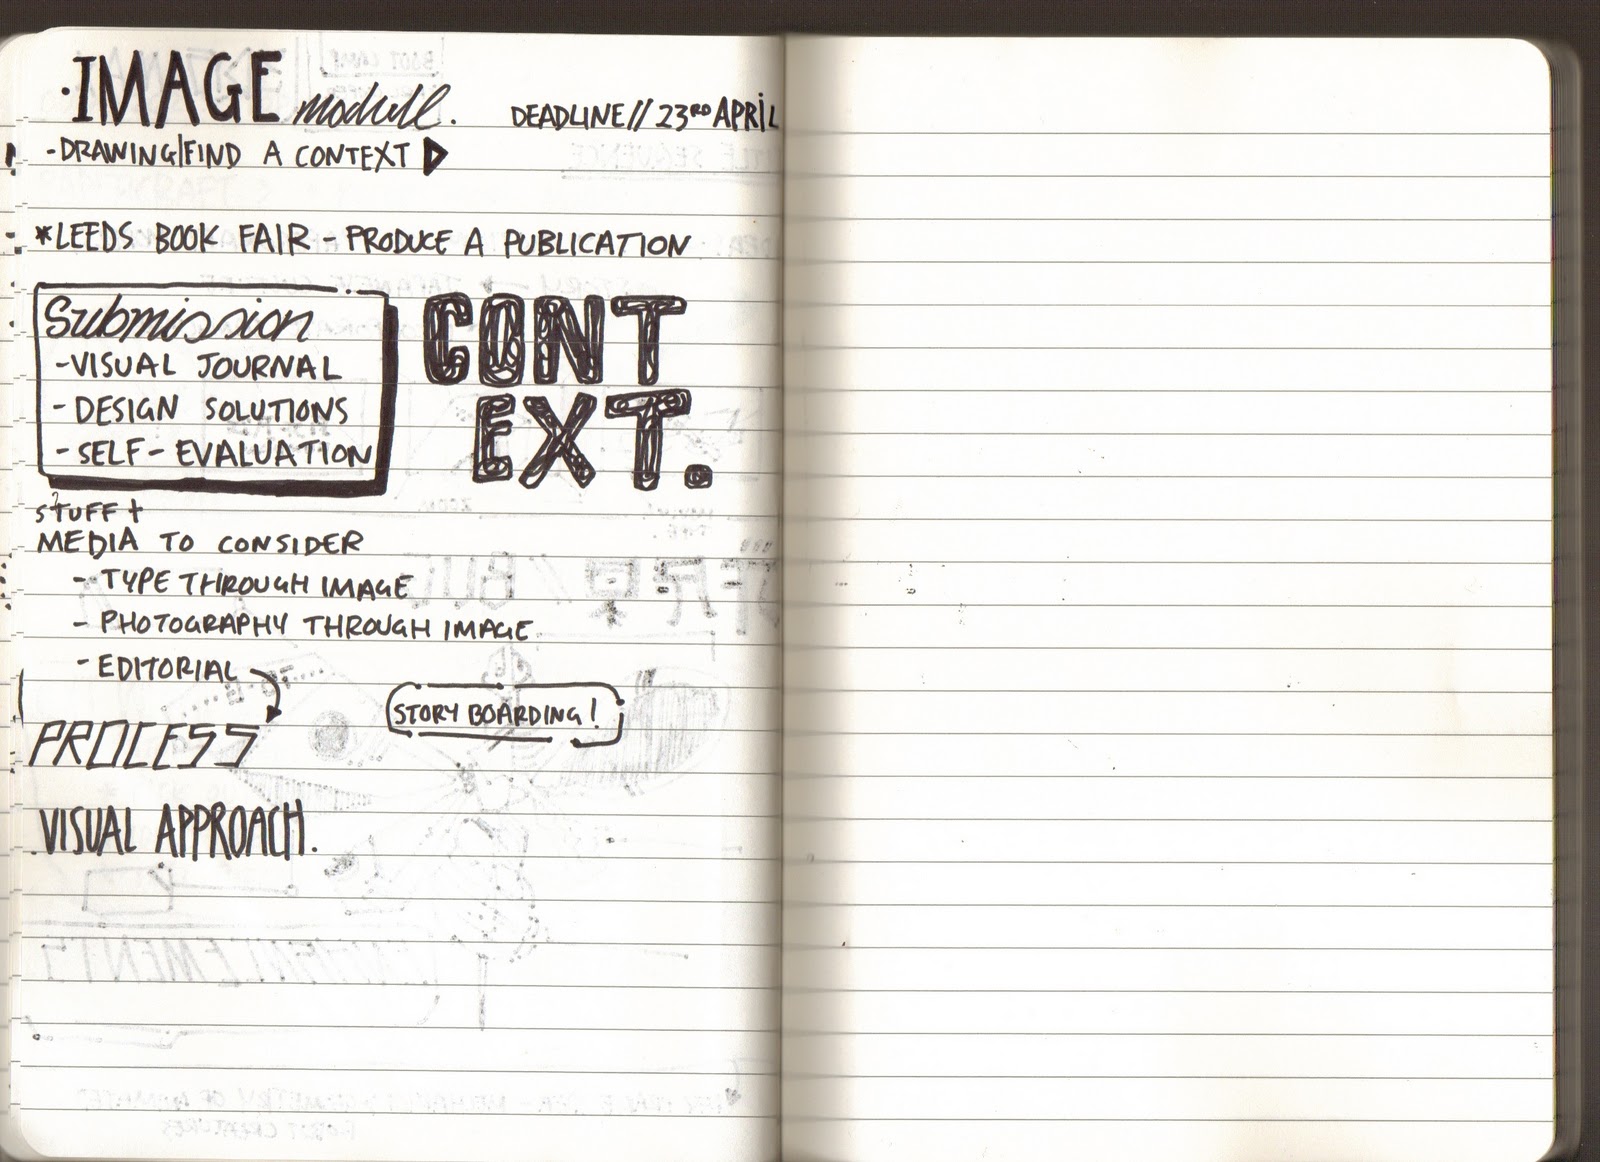 ·IMAGE module. DEADLINE// 23RD APRIL
-DRAWING|FIND A CONTEXT
*LEEDS BOOK FAIR - PRODUCE A PUBLICATION
Submission
-VISUAL JOURNAL
- DESIGN SOLUTIONS
- SELF-EVALUATION
CONT
EXT.
STUFF +
MEDIA TO CONSIDER
- TYPE THROUGH IMAGE
- PHOTOGRAPHY THROUGH IMAGE
- EDITORIAL
STORY BOARDING!
PROCESS
VISUAL APPROACH.